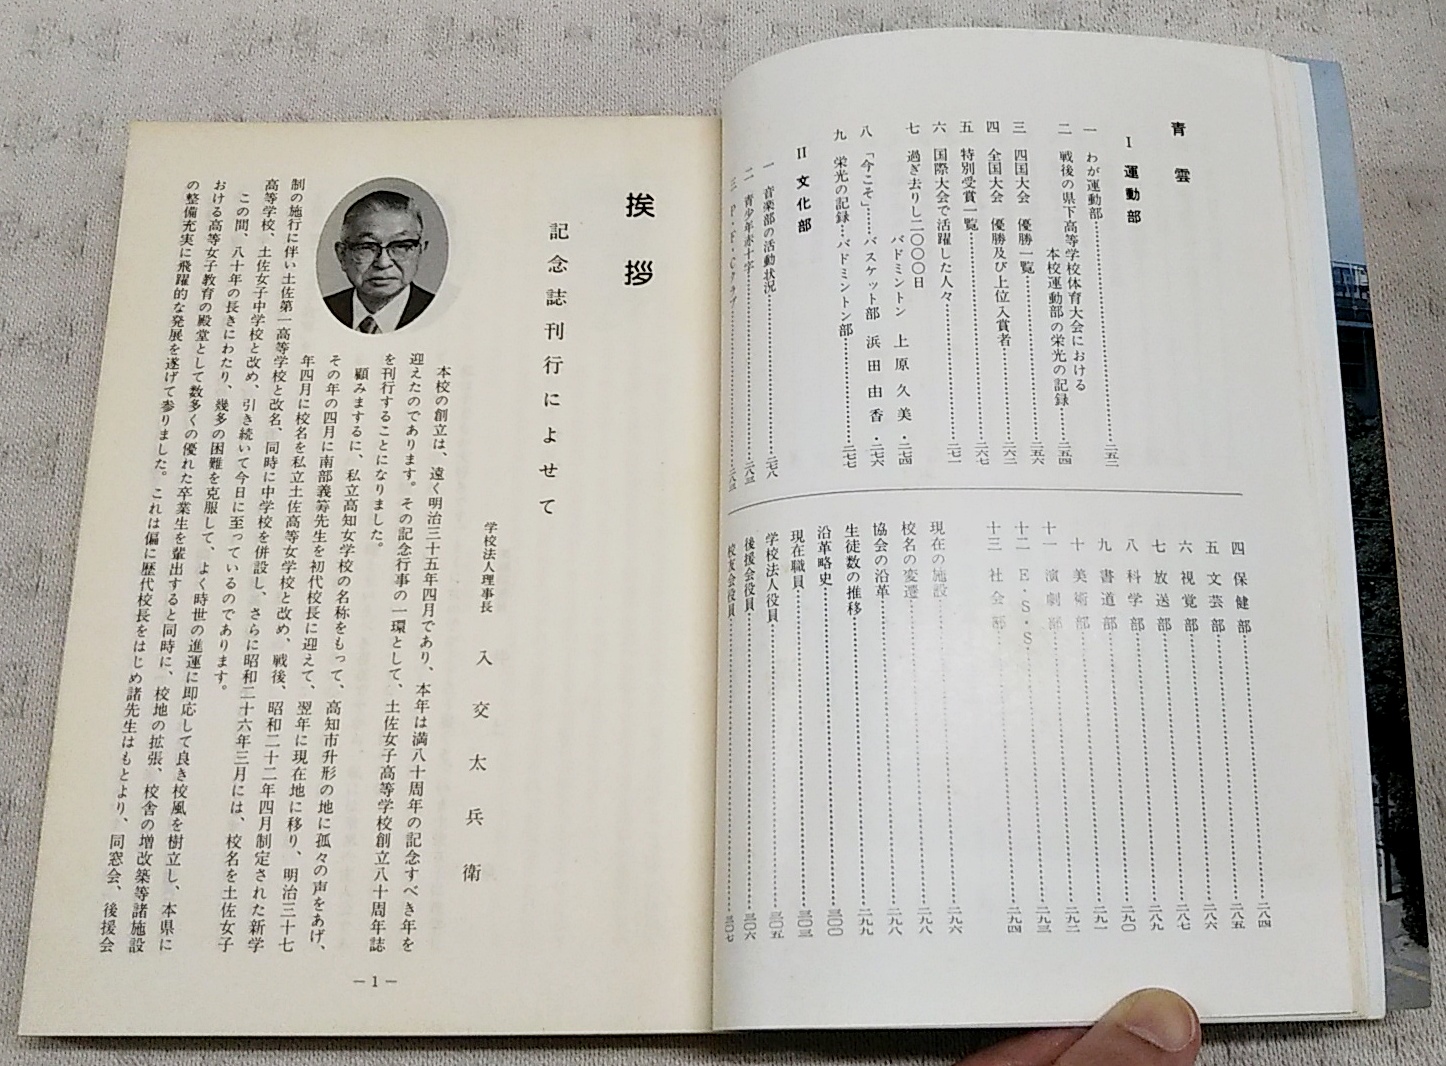 青雲
Ⅰ 運動部
一 わが運動部……二五二
二 戦後の県下高等学校体育大会における
本校運動部の栄光の記録……二五四
三 四国大会 優勝一覧……二五六
四 全国大会 優勝及び上位入賞者……二六二
五 特別受賞一覧……二六七
六 国際大会で活躍した人々……二七一
七 過ぎ去りし二〇〇〇日
バドミントン 上原久美・二七四
八 「今こそ」……バスケット部 浜田由香・二七六
九 栄光の記録……バドミントン部……二七七
Ⅱ 文化部
一 音楽部の活動状況……二七八
二 青少年赤十字……二八三
四 保健部……二八四
五 文芸部……二八五
六 視覚部……二八六
七 放送部……二八七
八 科学部……二八九
九 書道部……二九〇
十 美術部……二九一
十一 演劇部……二九二
十二 E・S・S……二九三
十三 社会部……二九四
現在の施設……二九六
校名の変遷……二九八
協会の沿革……二九八
生徒数の推移……二九九
沿革略史……三〇〇
現在職員……三〇三
学校法人役員……三〇五
後援会役員……三〇六
校友会役員……三〇七
挨拶
記念誌刊行によせて
学校法人理事長 入交太兵衛
本校の創立は、遠く明治三十五年四月であり、本年は満八十周年の記念すべき年を
迎えたのであります。その記念行事の一環として、土佐女子高等学校創立八十周年誌
を刊行することになりました。
顧みまするに、私立高知女学校の名称をもって、高知市升形の地に孤々の声をあげ、
その年の四月に南部義籌先生を初代校長に迎えて、翌年に現在地に移り、明治三十七
年四月に校名を私立土佐高等女学校と改め、戦後、昭和二十二年四月制定された新学
制の施行に伴い土佐第一高等学校と改名、同時に中学校を併設し、さらに昭和二十六年三月には、校名を土佐女子
高等学校、土佐女子中学校と改め、引き続いて今日に至っているのであります。
この間、八十年の長きにわたり、幾多の困難を克服して、よく時世の進運に即応して良き校風を樹立し、本県に
おける高等女子教育の殿堂として数多くの優れた卒業生を輩出すると同時に、校地の拡張、校舎の増改築等諸施設
の整備充実に飛躍的な発展を遂げて参りました。これは偏に歴代校長をはじめ諸先生はもとより、同窓会、後援会
― 1 ―